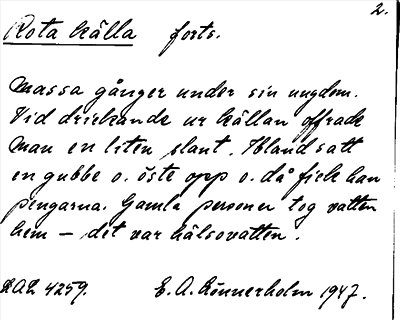 2.
Rota källa forts.
Massa gånger under sin ungdom.
Vid drickande ur källan offrade
man en liten slant. Ibland satt
en gubbe o. öste opp o. då fick han
pengarna. Gamla personer tog vatten
hem – det var hälsovatten.
E. A. Rönnerholm 1947.